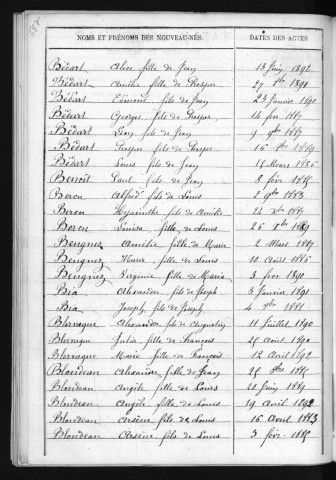 NOMS ET PRÉNOMS DES NOUVEAU-NÉS. DATES DES ACTES
Bédart Alice fille de Jean 13 Juin 1892
Bédart fille de Prosper 1891
Bédart Edmond fils de Jean 23 Janvier 1890
Bédart Georges fils de Prosper 14 fév
Bédart Léon fils de Jean 9 9bre
Bédart Prosper fils de Prosper 16
Bédart Louis fils de Jean 15 Mars 1886
Benoit Paul fils de Jean 8 fév.
Beron Alfred fils de Louis 2 9bre 1883
Beron Hyacinthe fils de 22 Xbre
Beron Louisa fille de Louis 25 Xbre
Beugnez Amélie fille de Marie 2 Mars
Beugnez Maria fille de Louis 10 Août 1886
Beugnez Virginie fille de Maria 3 fév. 1890
Bia Alexandre fils de Joseph 3 Janvier 1891
Bia Joseph fils de Joseph 4
Blarrague Alexandre fils de Augustin 11 Juillet 1890
Blarrague Julia fille de François 25 Août 1890
Blarrague Marie fille de François 12 Avril 1892
Blondeau Alexandre fille de Jean 25
Blondeau Angèle fille de Louis 20 Juin
Blondeau Angèle fille de Louis 19 Avril 1892
Blondeau Arsène fils de Louis 16 Avril 1883
Blondeau Arsène fils de Louis 3 fév.